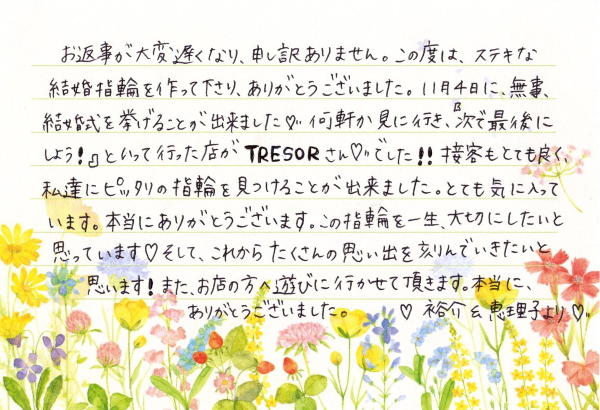 お返事が大変遅くなり、申し訳ありません。この度は、ステキな
結婚指輪を作って下さり、ありがとうございました。11月4日に、無事、
結婚式を挙げることが出来ました♡〃何軒か見に行き、『次で最後に
しよう!』といって行った店がTRESORさん♡〃でした!!接客もとても良く、
私達にピッタリの指輪を見つけることが出来ました。とても気に入って
います。本当にありがとうございます。この指輪を一生、大切にしたいと
思っています♡そして、これからたくさんの思い出を刻んでいきたいと
思います!また、お店の方へ遊びに行かせて頂きます。本当に、
ありがとうございました。 ♡ 裕介&恵理子より♡〃